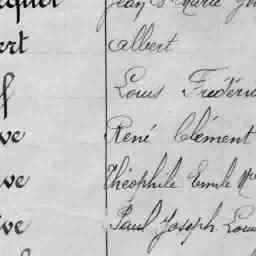 Jean Bte Marie
ert Albert
f Louis Frédéric
ve René Clément
ve Théophile Emile
ve Paul Joseph Louis